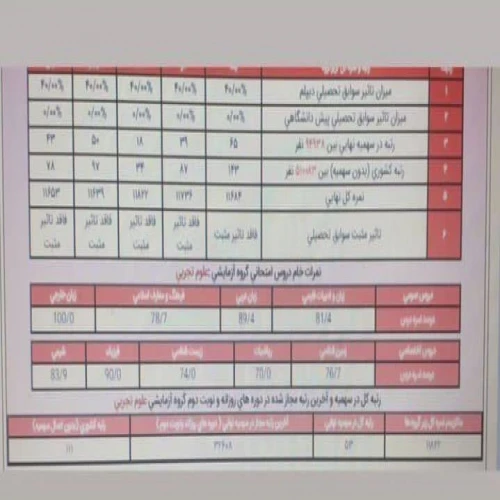 ۱ میزان تاثیر سوابق تحصیلی دیپلم ۴۰/۰۰% ۴۰/۰۰% ۴۰/۰۰% ۴۰/۰۰% ۴۰/۰۰%
۲ میزان تاثیر سوابق تحصیلی پیش دانشگاهی ۰/۰۰% ۰/۰۰% ۰/۰۰% ۰/۰۰% ۰/۰۰%
۳ رتبه در سهمیه نهایی بین ۹۴۹۳۸ نفر ۶۵ ۳۹ ۱۸ ۵۰ ۴۳
۴ رتبه کشوری (بدون سهمیه) بین نفر ۱۴۳ ۸۷ ۳۴ ۹۷ ۷۸
۵ نمره کل نهایی ۱۱۶۸۴ ۱۱۷۳۶ ۱۱۸۲۲ ۱۱۶۳۹ ۱۱۶۵۳
۶ تاثیر مثبت سوابق تحصیلی فاقد تاثیر مثبت فاقد تاثیر مثبت فاقد تاثیر مثبت فاقد تاثیر مثبت فاقد تاثیر مثبت
نمرات خام دروس امتحانی گروه آزمایشی علوم تجربی
دروس عمومی زبان و ادبیات فارسی زبان عربی فرهنگ و معارف اسلامی زبان خارجی
81/4 89/4 78/7 100/0
دروس اختصاصی زمین شناسی ریاضیات زیست شناسی فیزیک شیمی
76/7 70/0 74/0 90/0 83/9
رتبه کل در سهمیه و آخرین رتبه مجاز شده در دوره های روزانه و نوبت دوم گروه آزمایشی علوم تجربی
۱۱۸۲۲ ۵۳ ۳۲۶۰۸ ۱۱۱